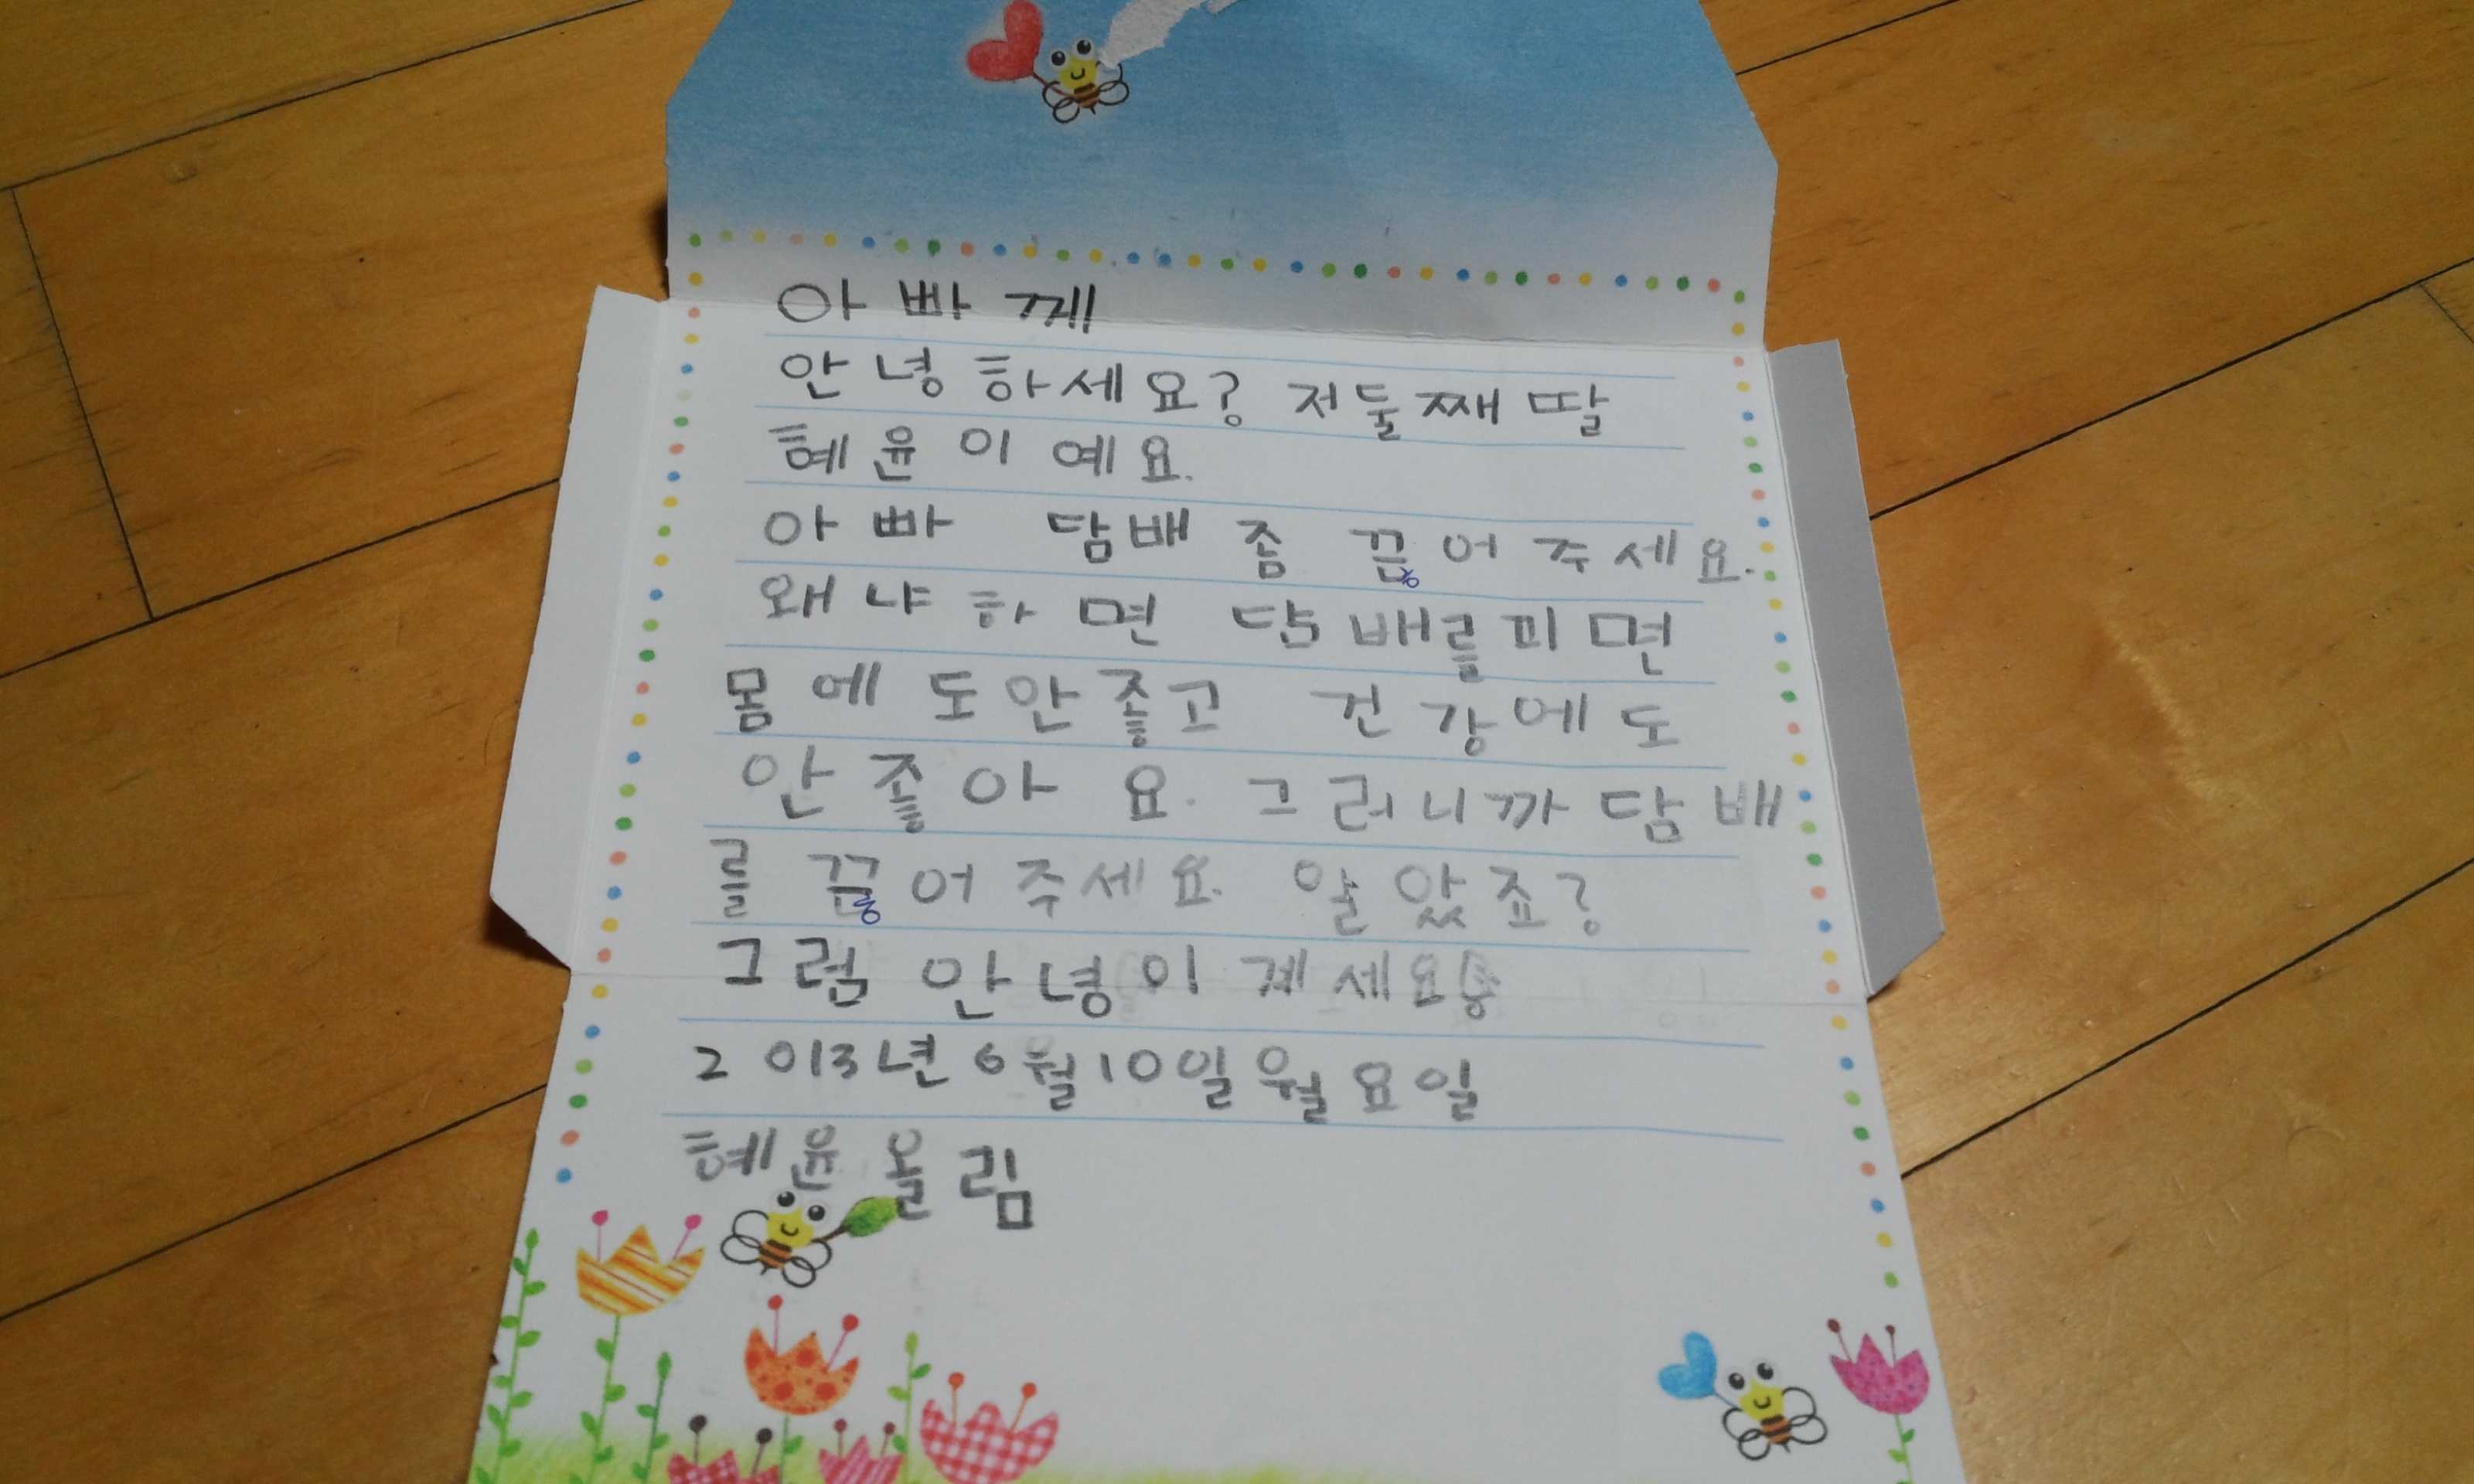 아빠께
안녕하세요? 저둘째딸
혜윤이예요.
아빠 담배 좀 끊어주세요.
왜냐하면 담배를피면
몸에도안좋고 건강에도
안좋아요. 그러니까담배
를 끊어주세요. 알았죠?
그럼 안녕이계세요
2013년6월10일월요일
혜윤올림